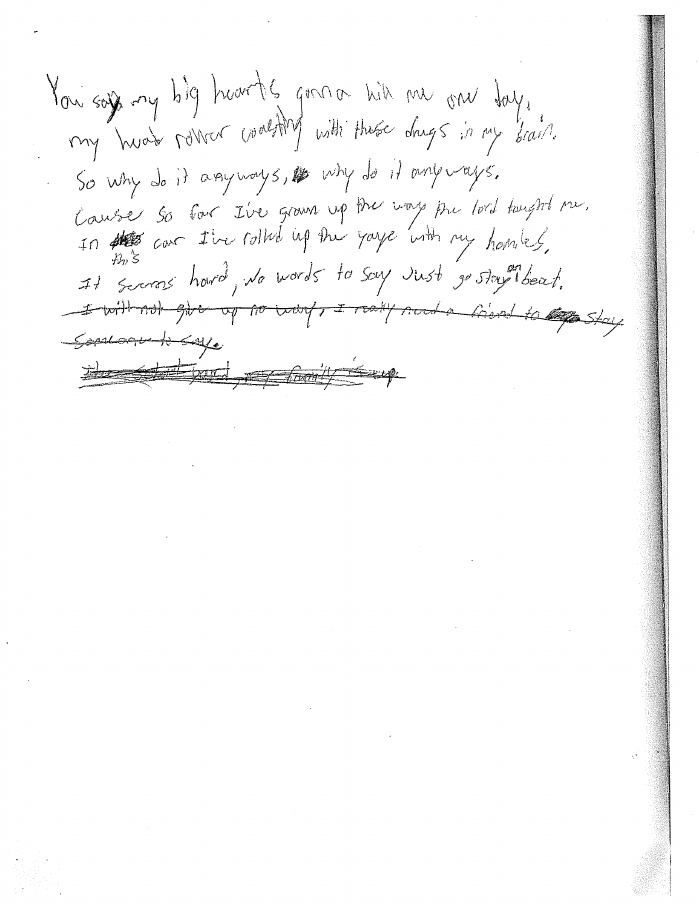 You say my big hearts gonna kill me one day,
my head roller coasting with these drugs in my brain.
So why do it anyways, why do it anyways.
Cause so far I've grown up the way the lord taught me.
In this car I've rolled up the yaye with my homies.
It seems hard, No words to say Just go stay on beat.
I will not give up no way, I really need a friend to Stay
Someone to say.
hard family is up